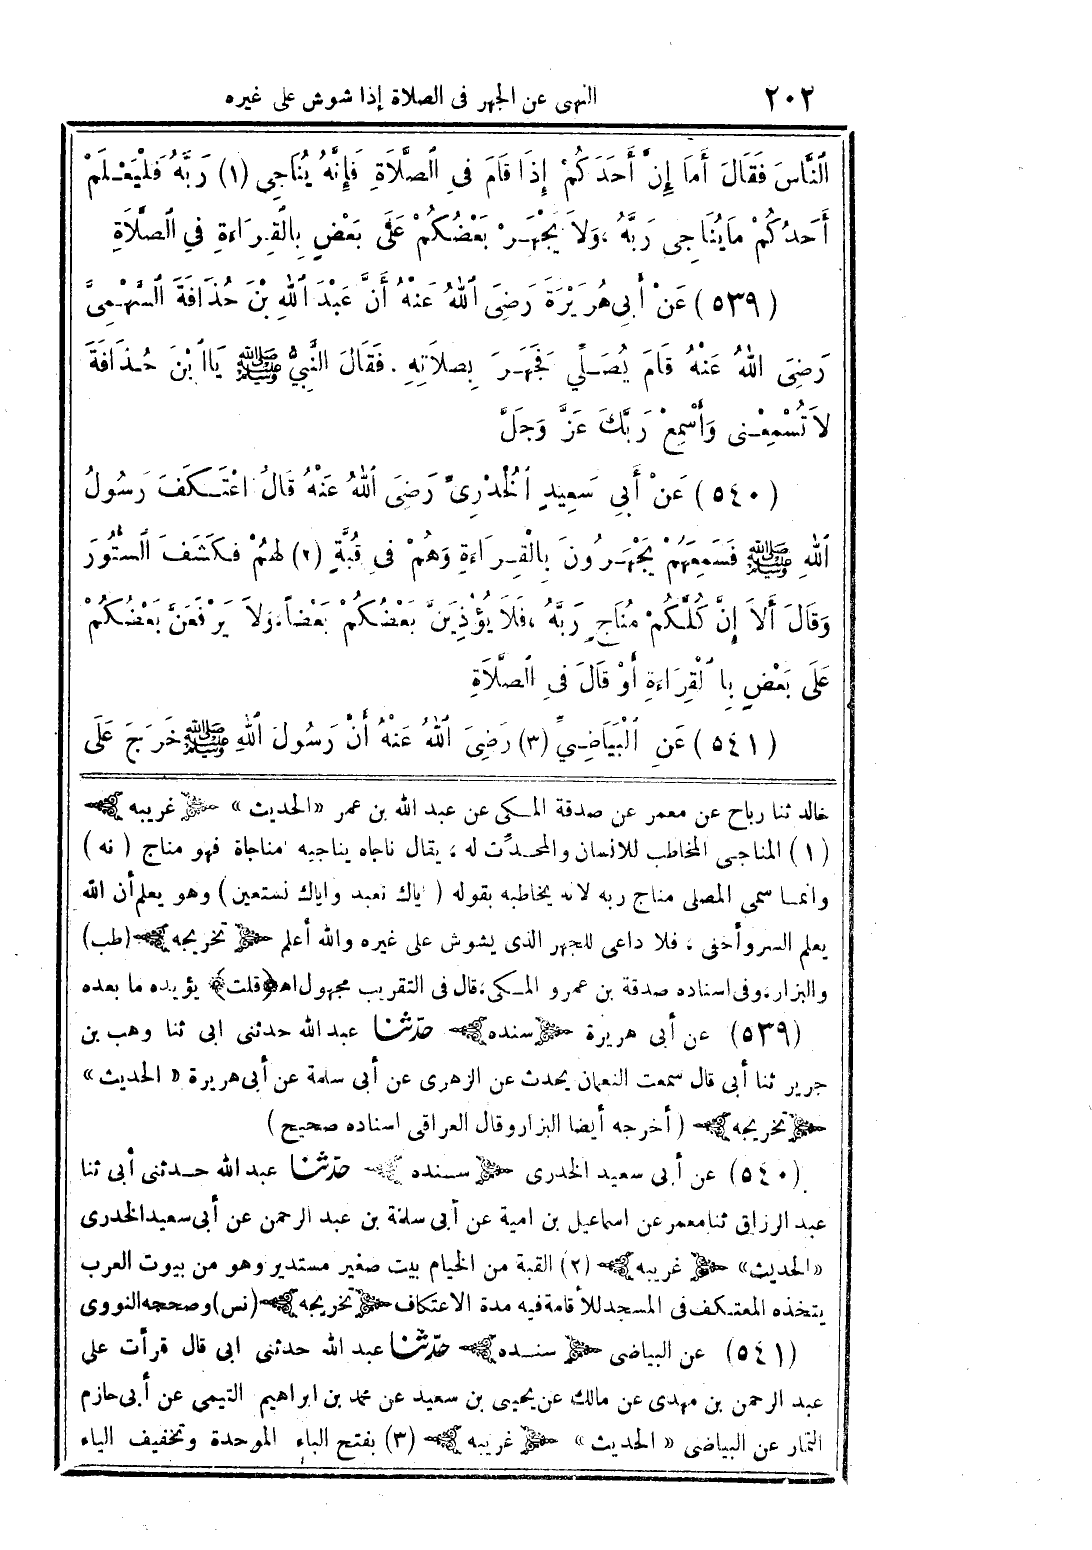 ٢٠٢ النهى عن الجهر فى الصلاة إذا شوش على غيره
ٱلنَّاسَ فَقَالَ أَمَا إِنَّ أَحَدَكُمْ إِذَا قَامَ فِى ٱلصَّلَاةِ فَإِنَّهُ يُنَاجِى (١) رَبَّهُ فَلْيَعْلَمْ
أَحَدُكُمْ مَا يُنَاجِى رَبَّهُ ، وَلَا يَجْهَرْ بَعْضُكُمْ عَلَى بَعْضٍ بِالْقِرَاءَةِ فِى ٱلصَّلَاةِ
(٥٣٩) عَنْ أَبِى هُرَيْرَةَ رَضِىَ ٱللهُ عَنْهُ أَنَّ عَبْدَ ٱللهِ بْنَ حُذَافَةَ ٱلسَّهْمِىَّ
رَضِىَ ٱللهُ عَنْهُ قَامَ يُصَلِّي فَجَهَرَ بِصَلَاتِهِ . فَقَالَ النَّبِىُّ ﷺ يَا ٱبْنَ حُذَافَةَ
لَا تُسْمِعْنِى وَأَسْمِعْ رَبَّكَ عَزَّ وَجَلَّ
(٥٤٠) عَنْ أَبِي سَعِيدٍ ٱلْخُدْرِىِّ رَضِىَ ٱللهُ عَنْهُ قَالَ اعْتَكَفَ رَسُولُ
ٱللهِ ﷺ فَسَمِعَهُمْ يَجْهَرُونَ بِالْقِرَاءَةِ وَهُمْ فِى قُبَّةٍ (٢) لَهُمْ فَكَشَفَ ٱلسُّتُورَ
وَقَالَ أَلَا إِنَّ كُلَّكُمْ مُنَاجٍ رَبَّهُ ، فَلَا يُؤْذِيَنَّ بَعْضُكُمْ بَعْضاً ، وَلَا يَرْفَعَنَّ بَعْضُكُمْ
عَلَى بَعْضٍ بِالْقِرَاءَةِ أَوْ قَالَ فِى ٱلصَّلَاةِ
(٥٤١) عَنِ ٱلْبَيَاضِيِّ (٣) رَضِىَ ٱللهُ عَنْهُ أَنَّ رَسُولَ ٱللهِ ﷺ خَرَجَ عَلَى
خالد ثنا رباح عن معمر عن صدقة المكى عن عبد الله بن عمر «الحديث» ﴿ غريبه ﴾
(١) المناجى المخاطب للانسان والمحدِّث له ، يقال ناجاه يناجيه مناجاة فهو مناج ( نه )
وانما سمى المصلى مناج ربه لانه يخاطبه بقوله ( اياك نعبد واياك نستعين ) وهو يعلم أن الله
يعلم السر وأخفى ، فلا داعى للجهر الذى يشوش على غيره والله أعلم ﴿ تخريجه ﴾ (طب)
والبزار ، وفى اسناده صدقة بن عمرو المكى ، قال فى التقريب مجهول اهـ ﴿ قلت ﴾ يؤيده ما بعده
(٥٣٩) عن أبى هريرة ﴿ سنده ﴾ حدّثنا عبد الله حدثنى ابى ثنا وهب بن
جرير ثنا أبى قال سمعت النعمان يحدث عن الزهرى عن أبى سلمة عن أبى هريرة « الحديث »
﴿ تخريجه ﴾ ( أخرجه أيضا البزار وقال العراقى اسناده صحيح )
(٥٤٠) عن أبى سعيد الخدرى ﴿ سنده ﴾ حدّثنا عبد الله حدثنى أبى ثنا
عبد الرزاق ثنا معمر عن اسماعيل بن امية عن أبى سلمة بن عبد الرحمن عن أبى سعيد الخدرى
«الحديث» ﴿ غريبه ﴾ (٢) القبة من الخيام بيت صغير مستدير وهو من بيوت العرب
يتخذه المعتكف فى المسجد للأقامة فيه مدة الاعتكاف ﴿ تخريجه ﴾ (نس) وصححه النووى
(٥٤١) عن البياضى ﴿ سنده ﴾ حدّثنا عبد الله حدثنى ابى قال قرأت على
عبد الرحمن بن مهدى عن مالك عن يحيى بن سعيد عن محمد بن ابراهيم التيمى عن أبى حازم
التمار عن البياضى « الحديث » ﴿ غريبه ﴾ (٣) بفتح الباء الموحدة وتخفيف الياء